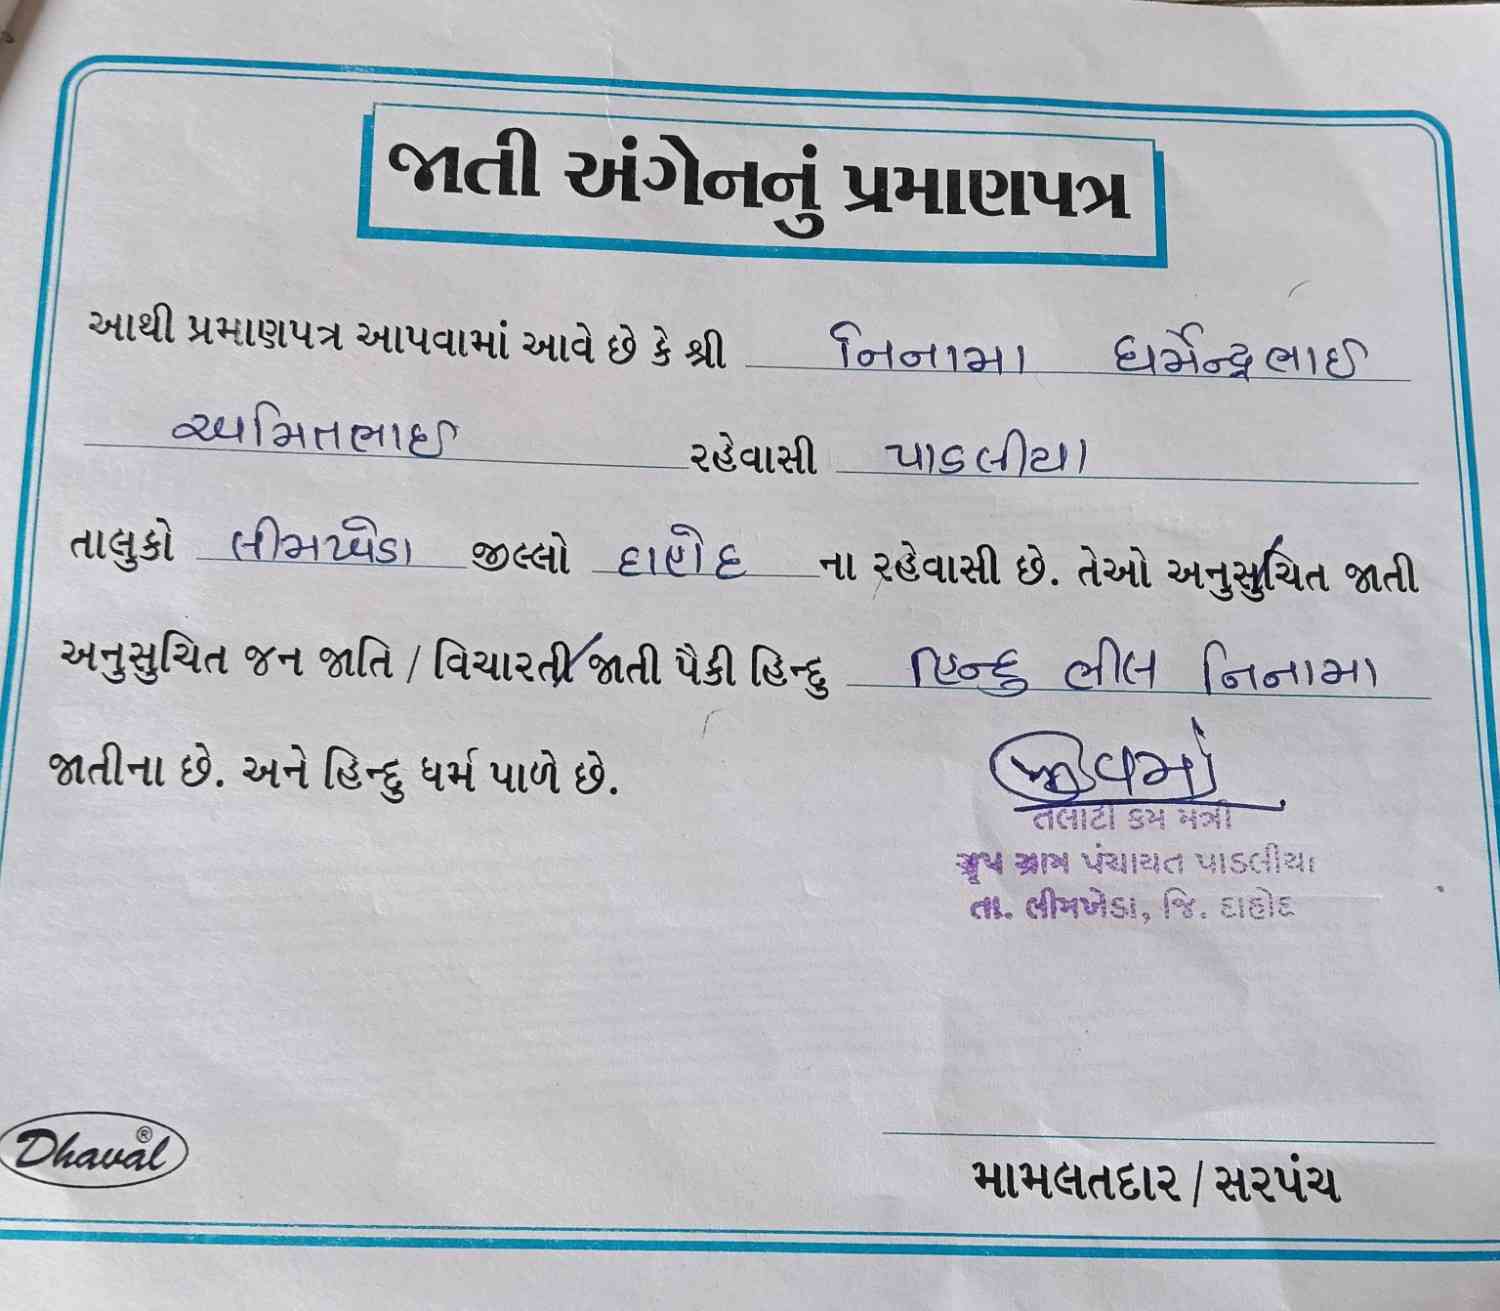 જાતી અંગેનનું પ્રમાણપત્ર
આથી પ્રમાણપત્ર આપવામાં આવે છે કે શ્રી નિનામા ધર્મેન્દ્રભાઈ
અમિતભાઈ રહેવાસી પાડલીયા
તાલુકો લીમખેડા જીલ્લો દાહોદ ના રહેવાસી છે. તેઓ અનુસુચિત જાતી
અનુસુચિત જન જાતિ / વિચારતી જાતી પૈકી હિન્દુ હિન્દુ ભીલ નિનામા
જાતીના છે. અને હિન્દુ ધર્મ પાળે છે.
તલાટી કમ મંત્રી
ગ્રૂપ ગ્રામ પંચાયત પાડલીયા
તા. લીમખેડા, જિ. દાહોદ
Dhaval®
મામલતદાર / સરપંચ